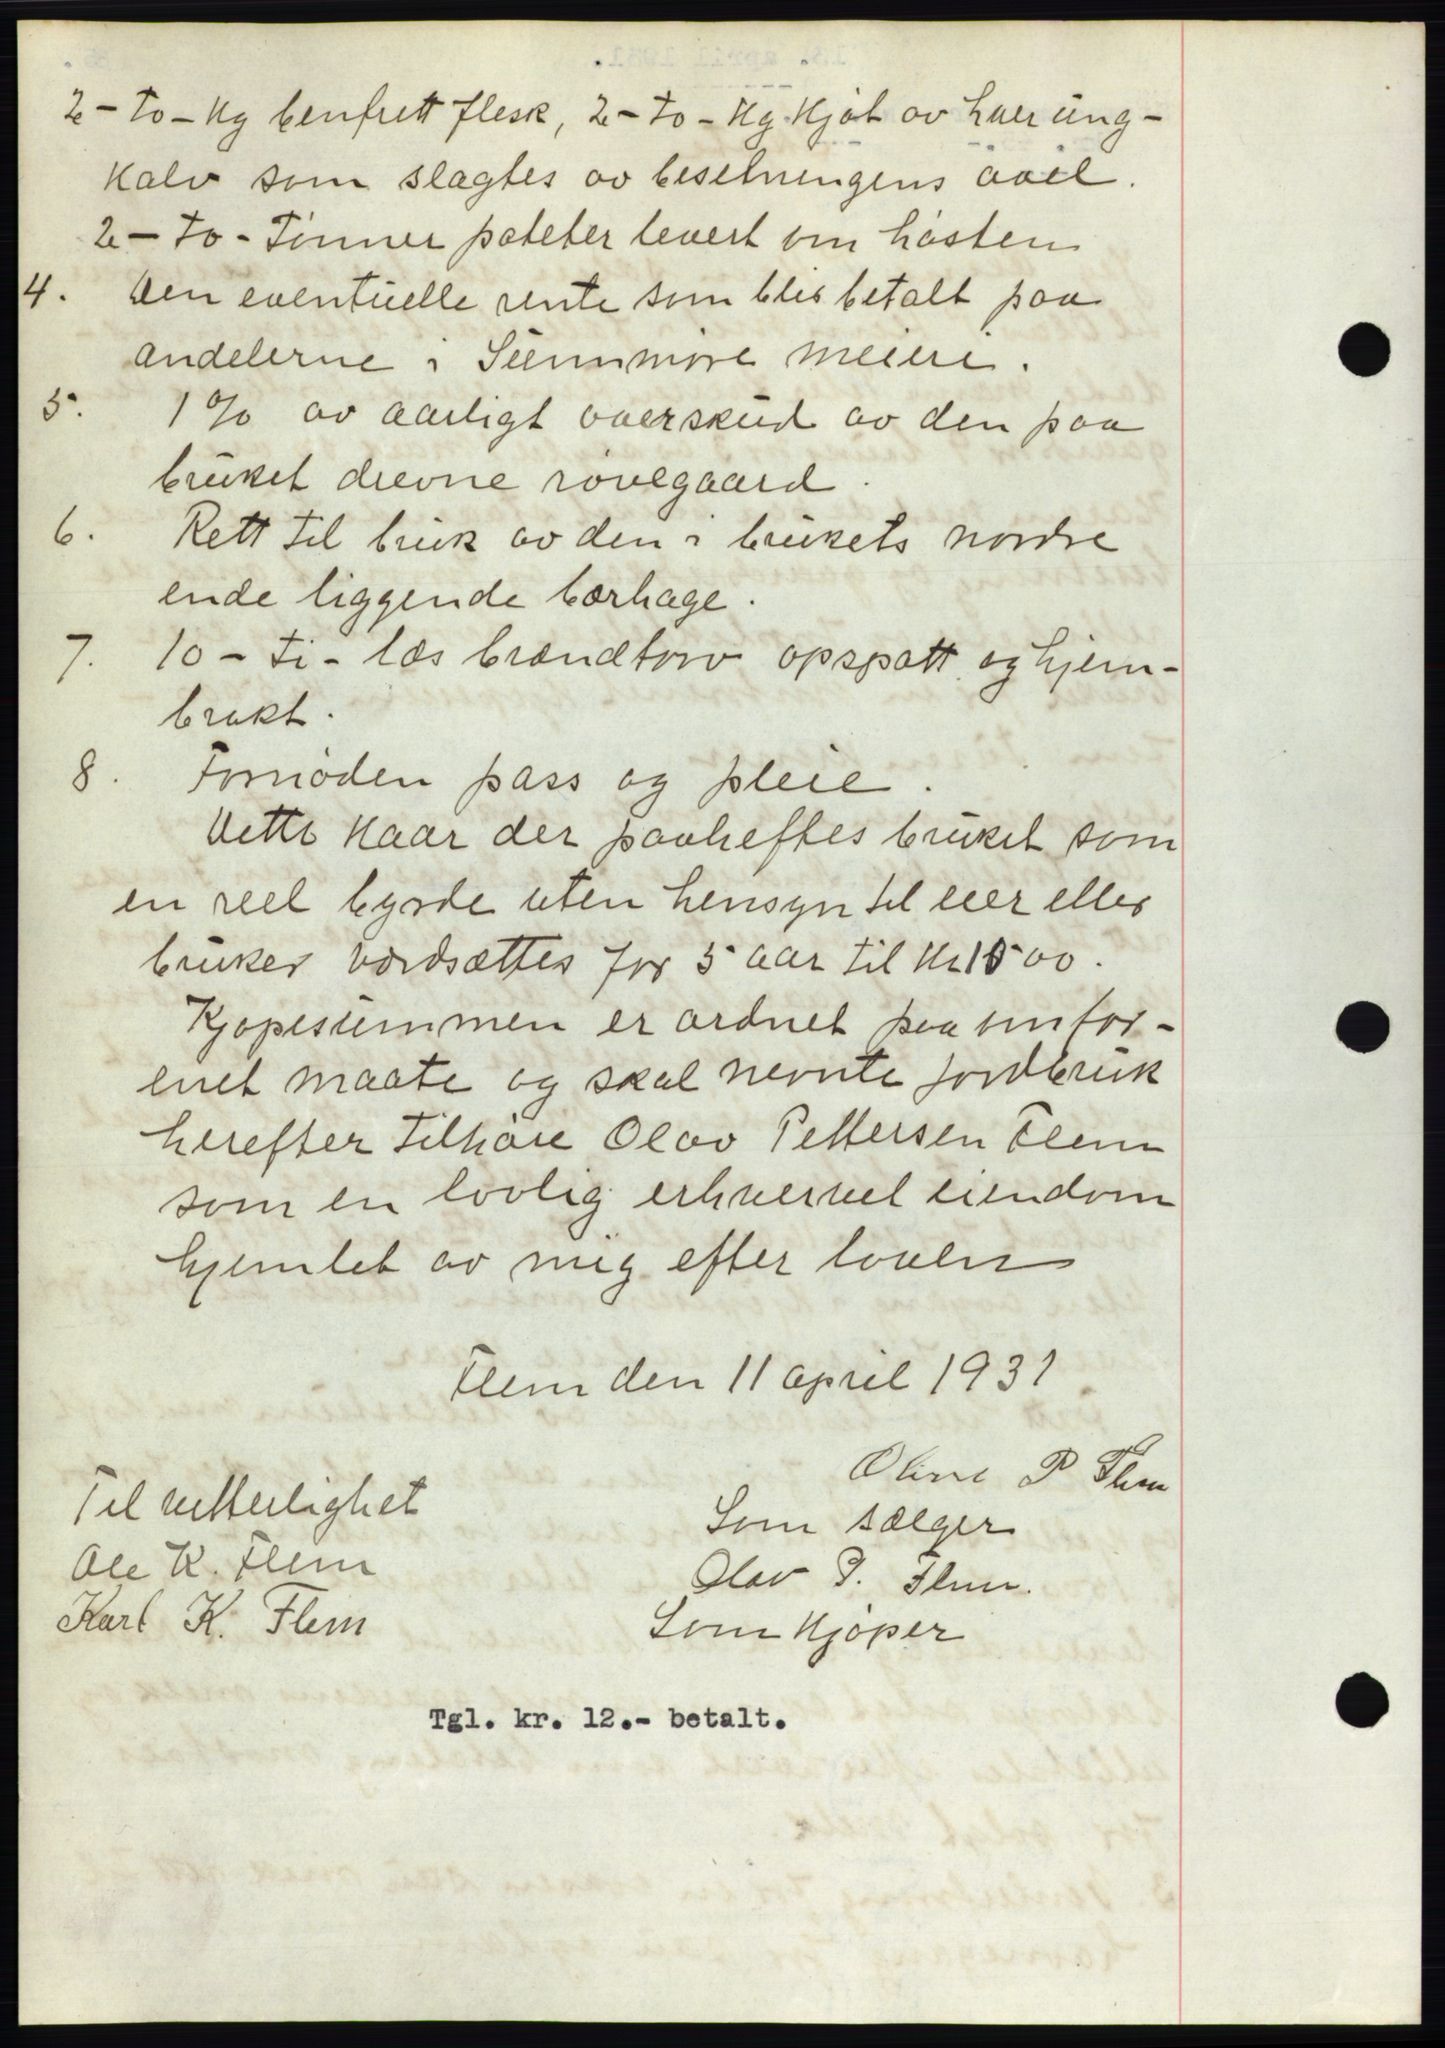 2 - to - kg benfrett flesk, 2 - to - kg kjöt av hver ung-
kalv som slagtes av besetningens avel.
2 - to - tönner poteter levert om hösten
4. Den eventuelle rente som blir betalt paa
andelerne i Sunnmöre meieri.
5. 1 % av aarligt overskud av den paa
bruket drevne revegaard.
6. Rett til bruk av den i brukets nordre
ende liggende bærhage.
7. 10 - ti - læs brændtorv opspatt og hjem-
brakt.
8. Fornöden pass og pleie.
Dette kaar der paaheftes bruket som
en reel byrde uten hensyn til eier eller
bruker værdsættes for 5 aar til kr 1500.
Kjöpesummen er ordnet paa omfor-
enet maate og skal nevnte jordbruk
herefter tilhöre Olav Pettersen Flem
som en lovlig erhvervet eiendom
hjemlet av mig efter loven
Flem den 11 april 1931
Oline P Flem
Til vitterlighet
Som sælger
Ole K. Flem
Olav P. Flem.
Karl K. Flem
Som kjöper
Tgl. kr. 12.- betalt.